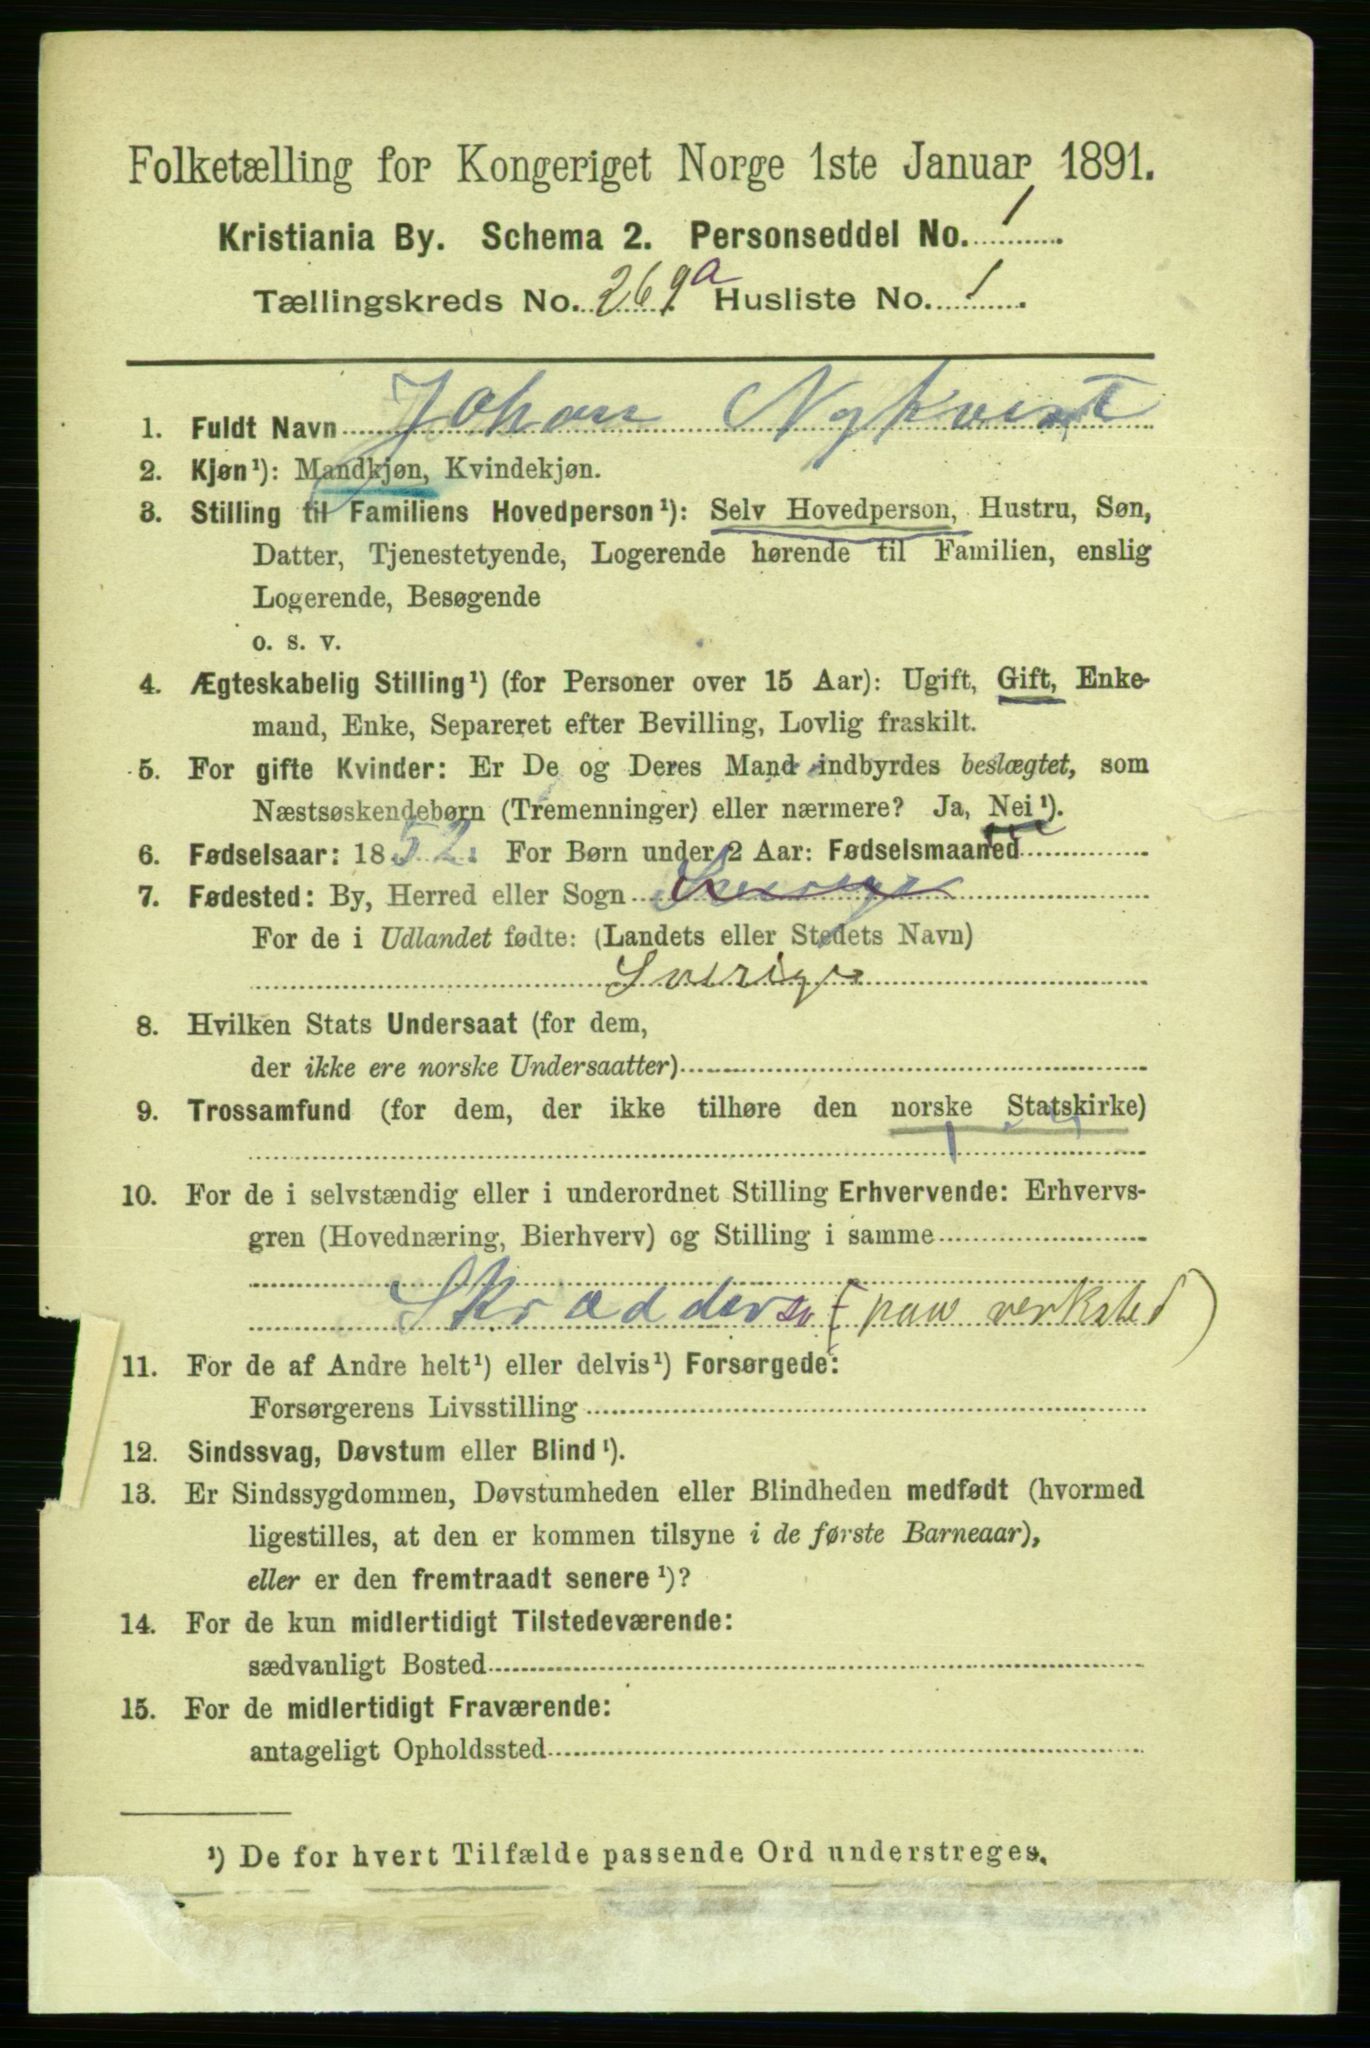 Folketælling for Kongeriget Norge 1ste Januar 1891.
Kristiania By. Schema 2. Personseddel No. 1
Tællingskreds No. 269a Husliste No. 1
1. Fuldt Navn Johan Nykvist
2. Kjøn¹): Mandkjøn, Kvindekjøn.
3. Stilling til Familiens Hovedperson¹): Selv Hovedperson, Hustru, Søn,
Datter, Tjenestetyende, Logerende hørende til Familien, enslig
Logerende, Besøgende
o. s. v.
4. Ægteskabelig Stilling¹) (for Personer over 15 Aar): Ugift, Gift, Enke-
mand, Enke, Separeret efter Bevilling, Lovlig fraskilt.
5. For gifte Kvinder: Er De og Deres Mand indbyrdes beslægtet, som
Næstsøskendebørn (Tremenninger) eller nærmere? Ja, Nei¹).
6. Fødselsaar: 1852. For Børn under 2 Aar: Fødselsmaaned
7. Fødested: By, Herred eller Sogn Sverige
For de i Udlandet fødte: (Landets eller Stedets Navn)
Sverige
8. Hvilken Stats Undersaat (for dem,
der ikke ere norske Undersaatter)
9. Trossamfund (for dem, der ikke tilhøre den norske Statskirke)
10. For de i selvstændig eller i underordnet Stilling Erhvervende: Erhvervs-
gren (Hovednæring, Bierhverv) og Stilling i samme
Skrædder (paa verksted)
11. For de af Andre helt¹) eller delvis¹) Forsørgede:
Forsørgerens Livsstilling
12. Sindssvag, Døvstum eller Blind¹).
13. Er Sindssygdommen, Døvstumheden eller Blindheden medfødt (hvormed
ligestilles, at den er kommen tilsyne i de første Barneaar),
eller er den fremtraadt senere¹)?
14. For de kun midlertidigt Tilstedeværende:
sædvanligt Bosted
15. For de midlertidigt Fraværende:
antageligt Opholdssted
¹) De for hvert Tilfælde passende Ord understreges.